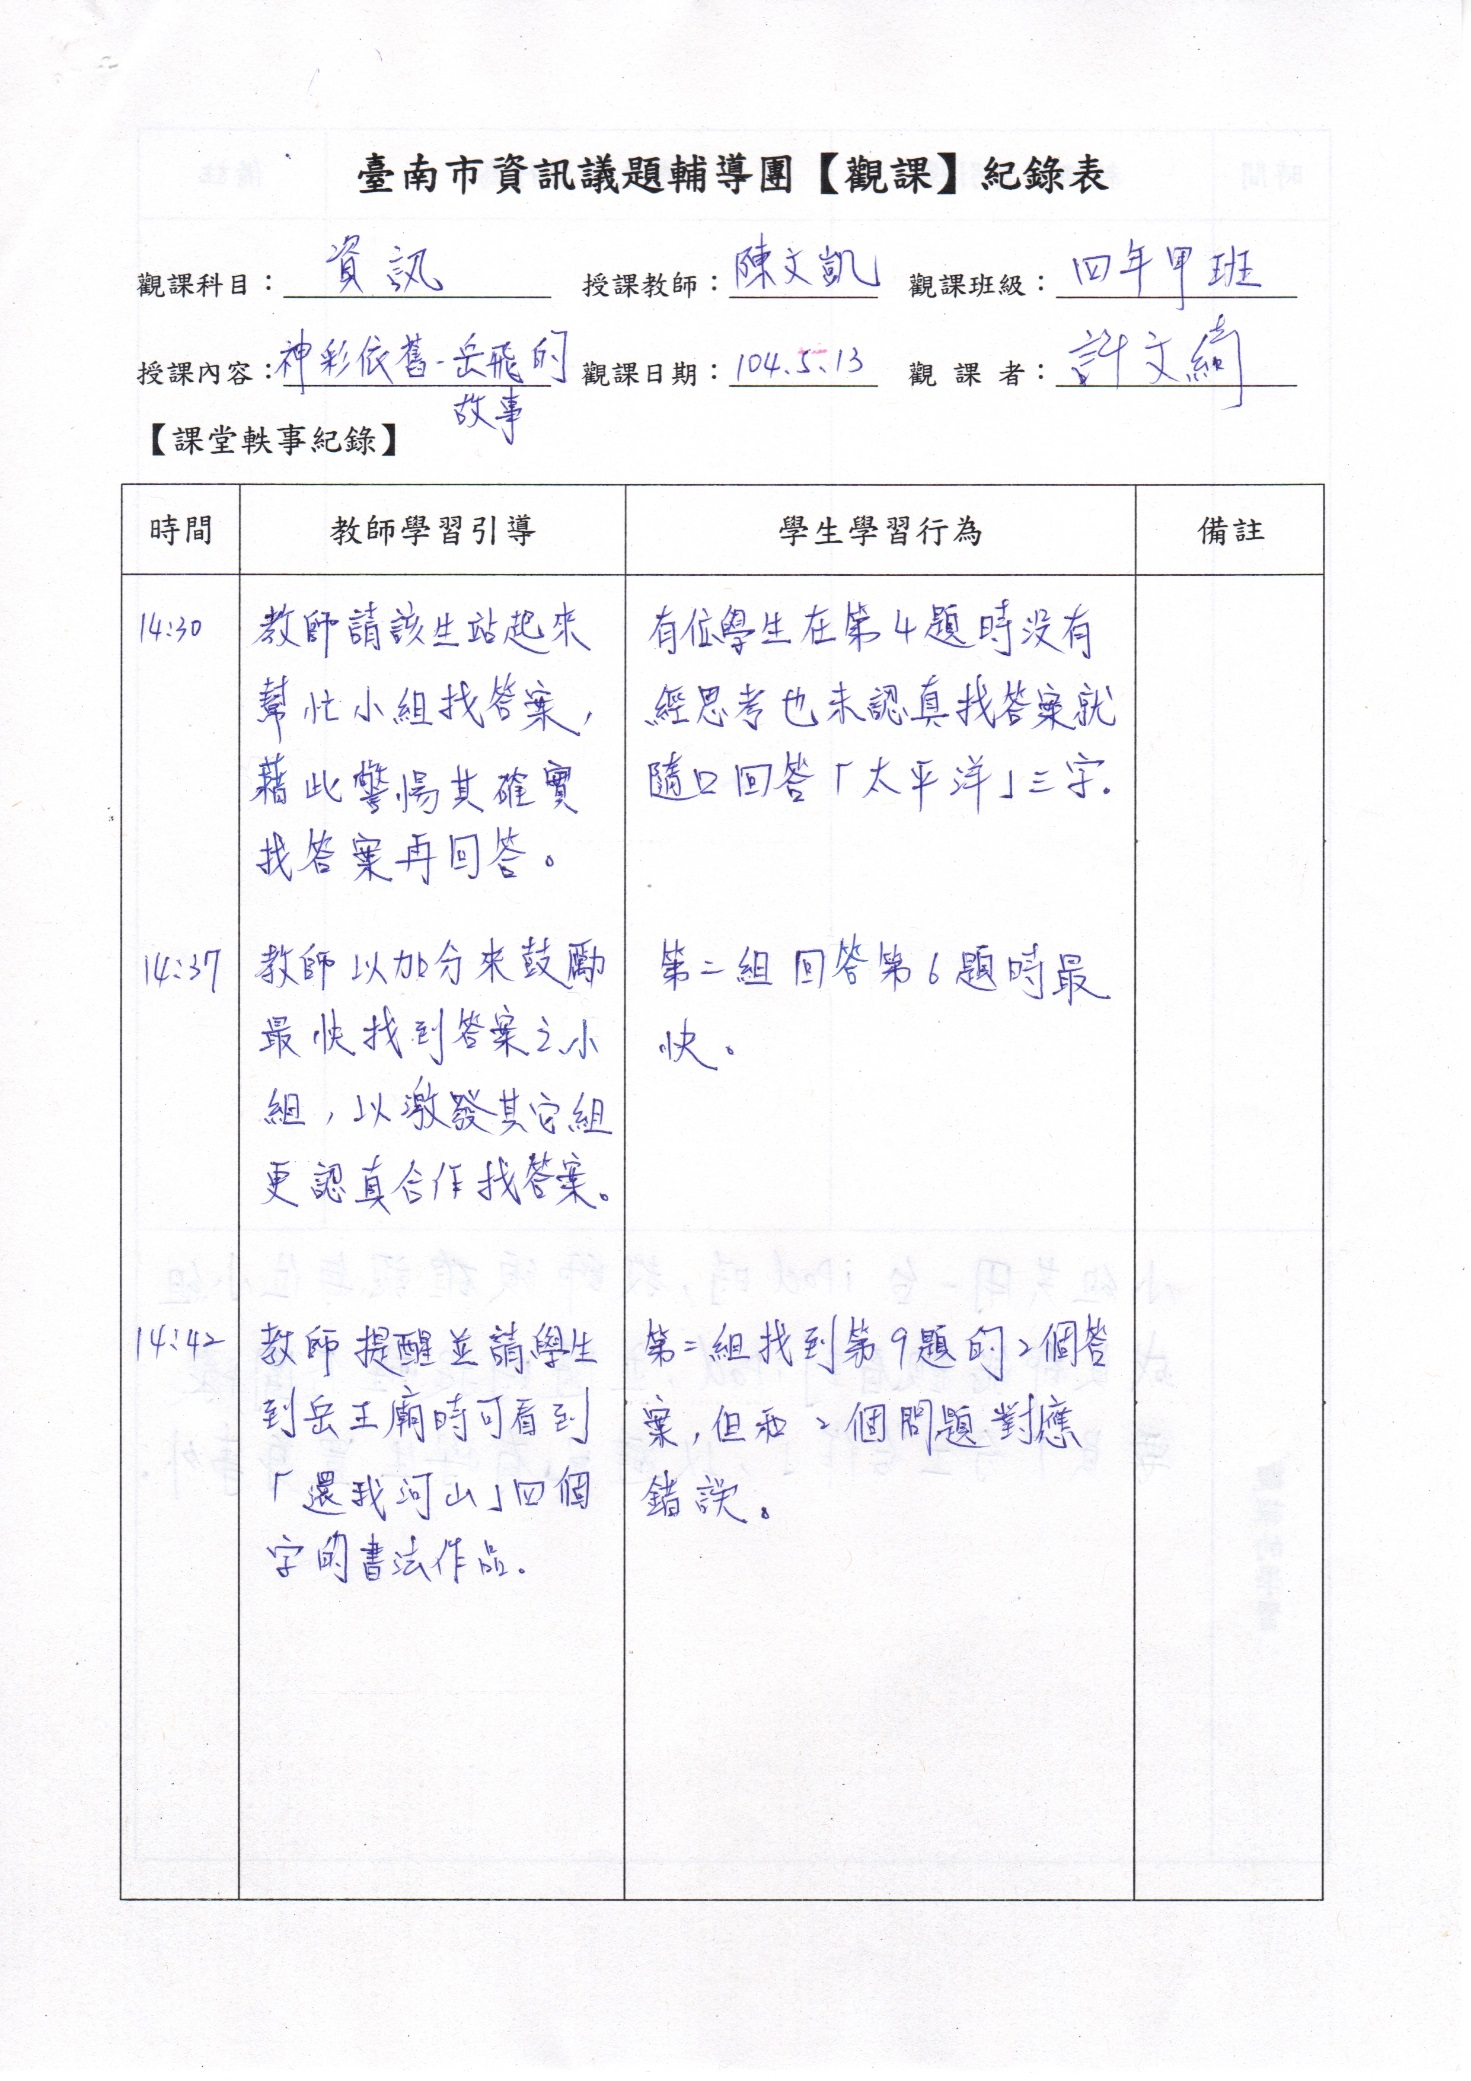 臺南市資訊議題輔導團【觀課】紀錄表
觀課科目：資訊 授課教師：陳文凱 觀課班級：四年甲班
授課內容：神彩依舊-岳飛的故事 觀課日期：104.5.13 觀課者：許文綺
【課堂軼事紀錄】
時間 教師學習引導 學生學習行為 備註
14:30
教師請該生站起來
幫忙小組找答案，
藉此警惕其確實
找答案再回答。
有位學生在第4題時没有
經思考也未認真找答案就
隨口回答「太平洋」三字.
14:37
教師以加分來鼓勵
最快找到答案之小
組，以激發其它組
更認真合作找答案。
第二組回答第6題時最
快。
14:42
教師提醒並請學生
到岳王廟時可看到
「還我河山」四個
字的書法作品.
第二組找到第9題的2個答
案，但和2個問題對應
錯誤。